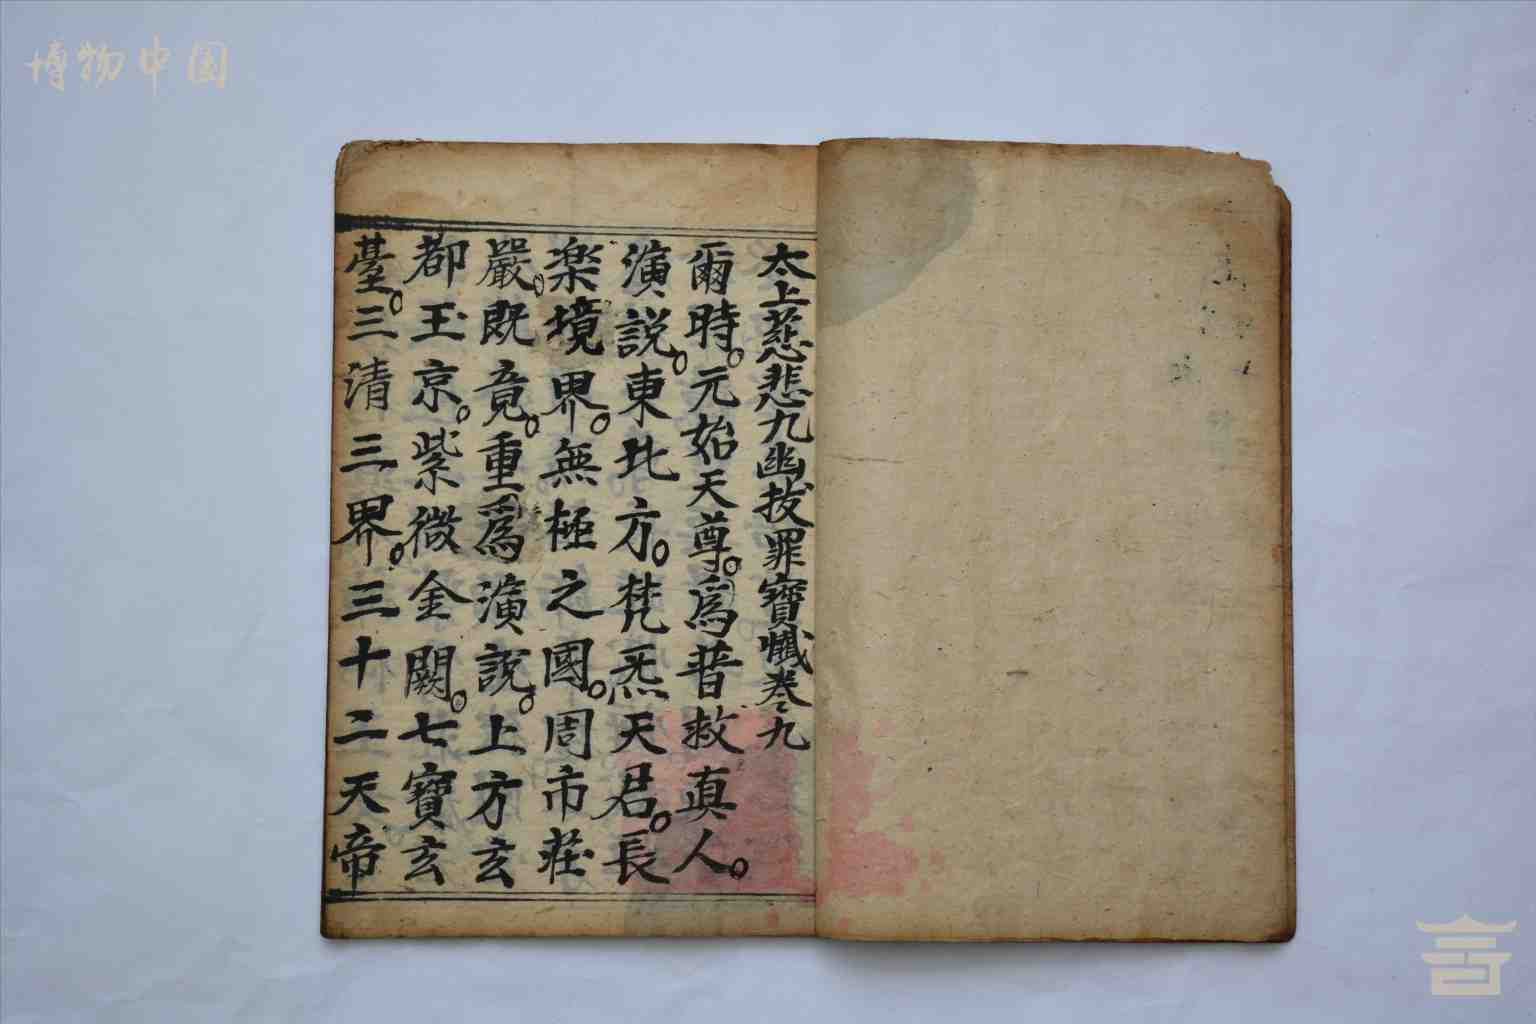 博物中国
太上慈悲九幽拔罪寶懺卷九
爾時。元始天尊。爲普救真人。
演說。東北方。梵炁天君。長
楽境界。無極之國。周帀莊
嚴。既竟。重爲演說。上方玄
都玉京。紫微金闕。七寶玄
臺。三清三界。三十二天帝